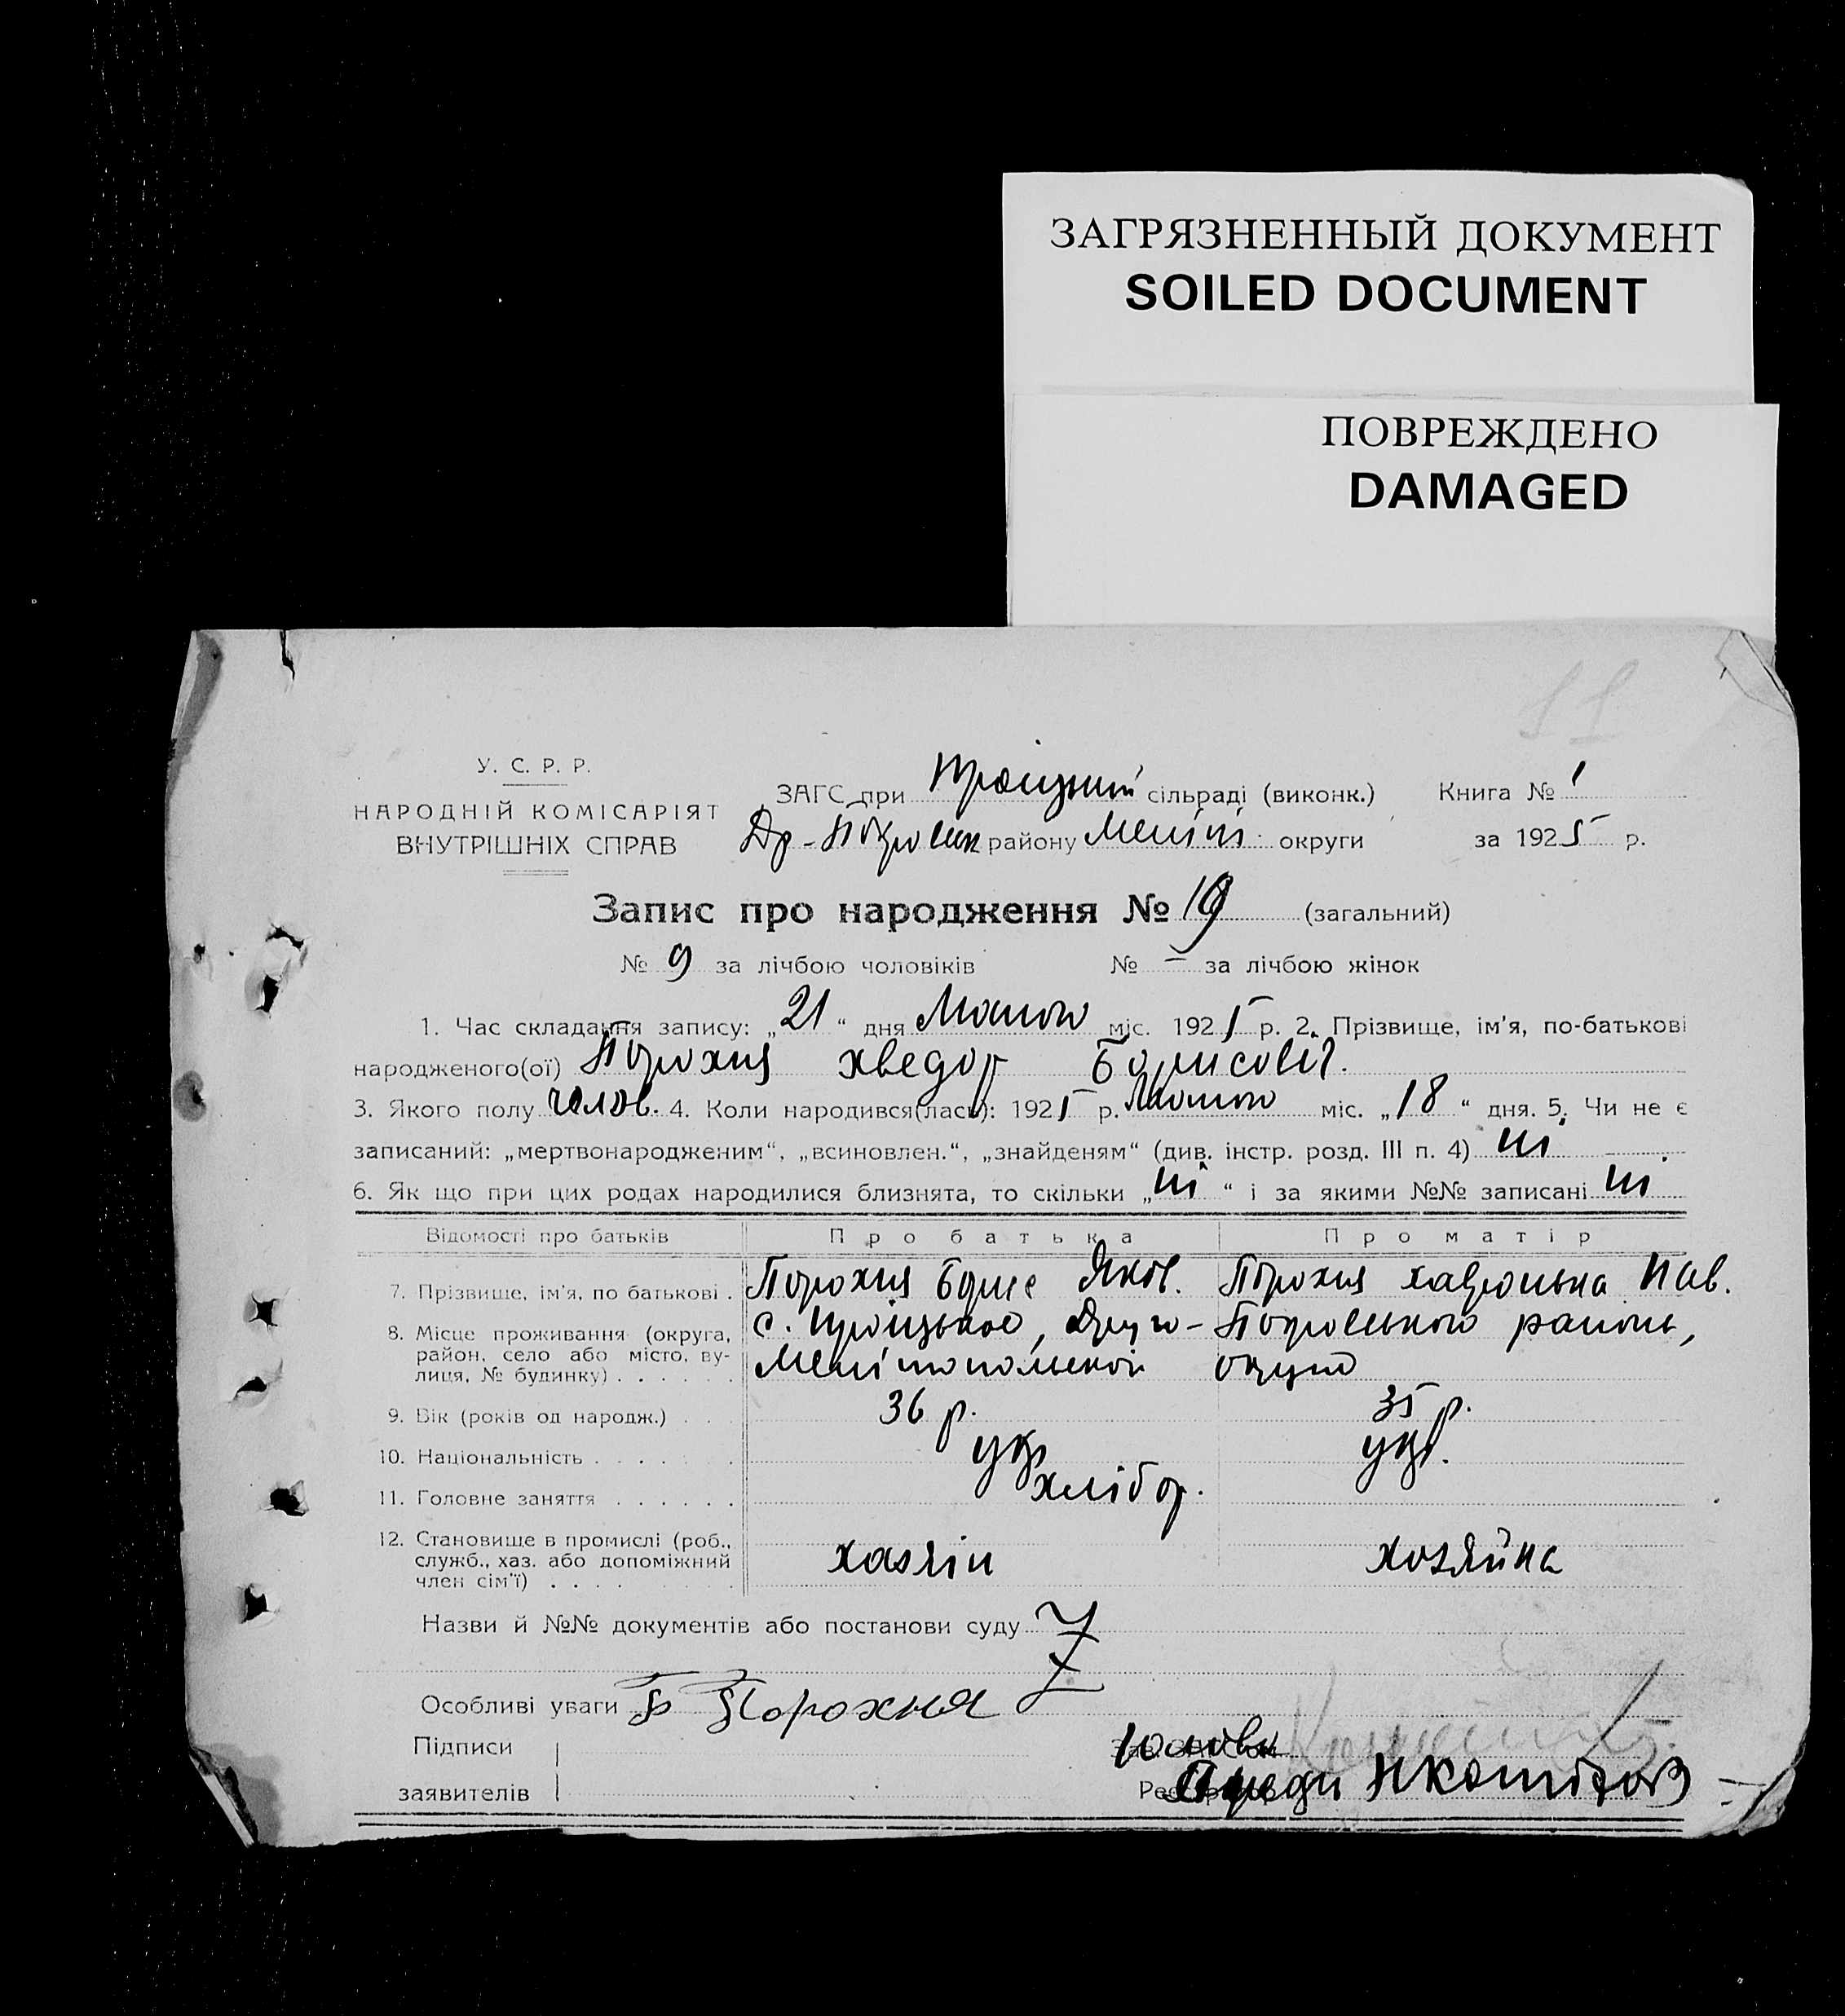 ЗАГРЯЗНЕННЫЙ ДОКУМЕНТ
SOILED DOCUMENT
ПОВРЕЖДЕНО
DAMAGED
11
У. С. Р. Р.
НАРОДНІЙ КОМІСАРІЯТ
ВНУТРІШНІХ СПРАВ
ЗАГС при Троіцький сільраді (виконк.) Книга № 1
Др-Покровськ району Меліт. округи за 1925 р.
Запис про народження № 19 (загальний)
№ 9 за лічбою чоловіків № – за лічбою жінок
1. Час складання запису: „21“ дня Лютого міс. 1925 р. 2. Прізвище, ім'я, по-батькові
народженого(ої) Порохня Хведор Борисовіч.
3. Якого полу чолов. 4. Коли народився(лась): 1925 р. Лютого міс. „18“ дня. 5. Чи не є
записаний: „мертвонародженим“, „всиновлен.“, „знайденям“ (див. інстр. розд. III п. 4) ні
6. Як що при цих родах народилися близнята, то скільки „ні“ і за якими №№ записані ні
Відомості про батьків Про батька Про матір
7. Прізвище, ім'я, по батькові . Порохня Борис Яков. Порохня Хавронька Пав.
8. Місце проживання (округа, район, село або місто, вулиця, № будинку) . . . . . . с. Троіцькое, Друго-Покровського района,
Мелітопольской округи
9. Вік (років од народж.) . . . 36 р. 35 р.
10. Національність . . . . . . . укр укр.
11. Головне заняття . . . . . . хлібор.
12. Становище в промислі (роб., служб., хаз. або допоміжний член сім'ї) . . . . хазяін хозяйка
Назви й №№ документів або постанови суду
Особливі уваги Б Порохня
Підписи Голова
заявителів